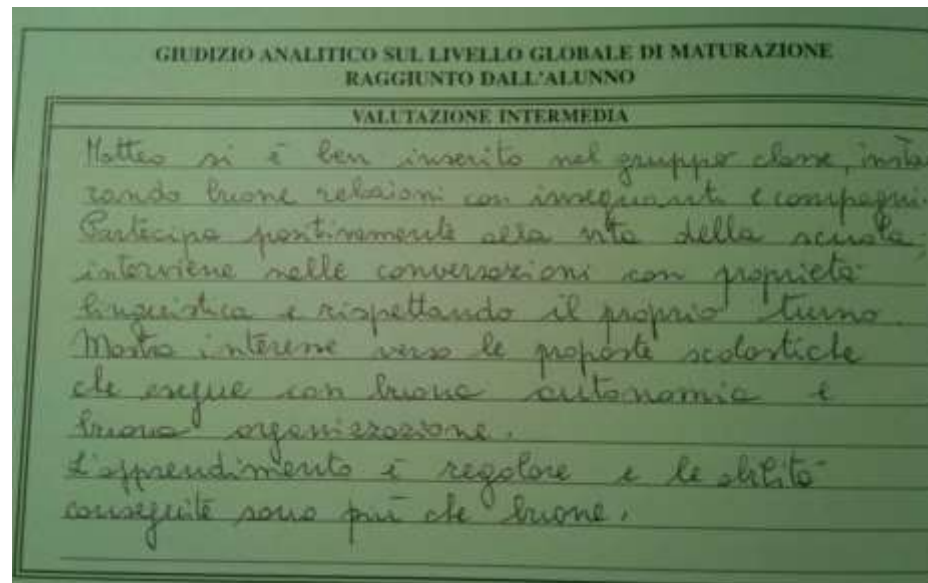 GIUDIZIO ANALITICO SUL LIVELLO GLOBALE DI MATURAZIONE
RAGGIUNTO DALL'ALUNNO
VALUTAZIONE INTERMEDIA
Matteo si è ben inserito nel gruppo classe, instau
rando buone relazioni con insegnanti e compagni.
Partecipa positivamente alla vita della scuola;
interviene nelle conversazioni con proprietà
linguistica e rispettando il proprio turno.
Mostra interesse verso le proposte scolastiche
che esegue con buona autonomia e
buona organizzazione.
L'apprendimento è regolare e le abilità
conseguite sono più che buone.